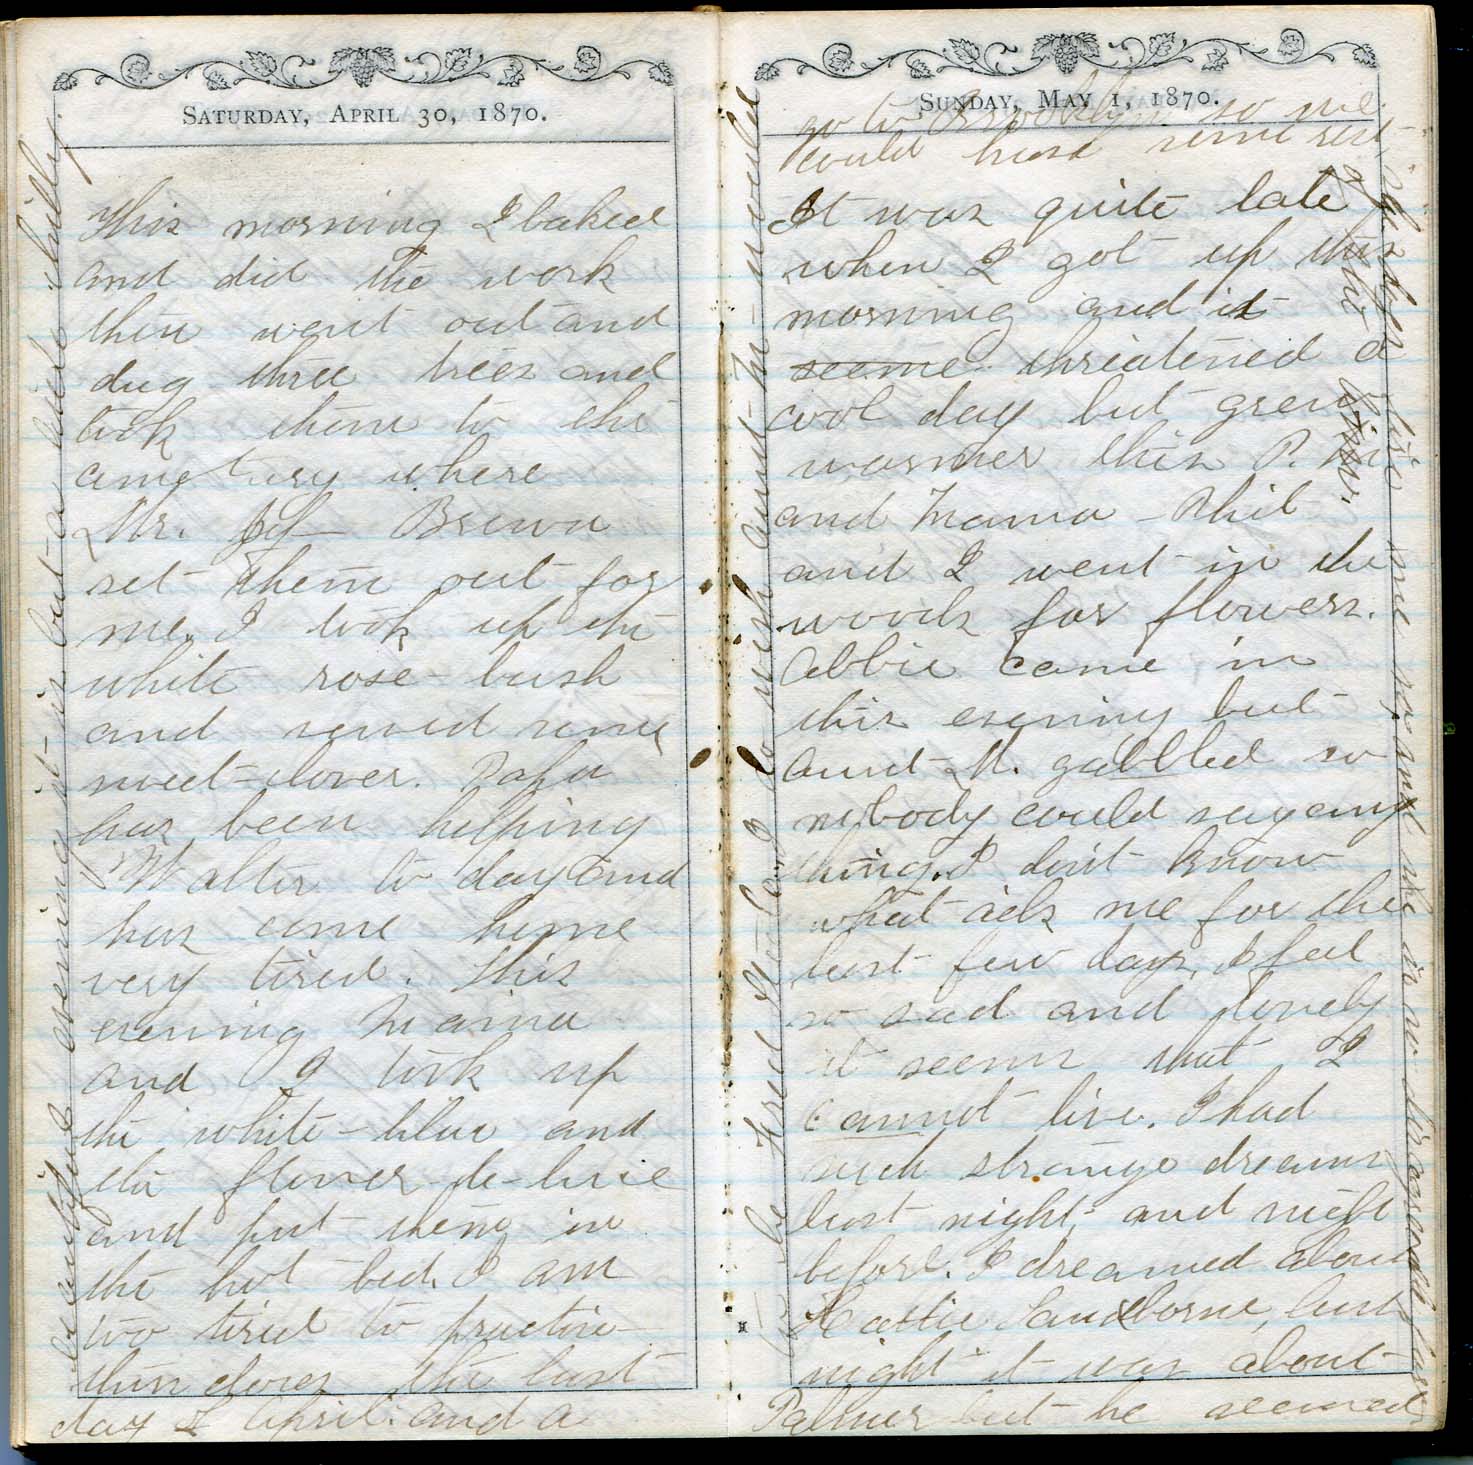 SATURDAY, APRIL 30, 1870.
This morning I baked
and did the work
then went out and
dug three trees and
took them to the
cemetery where
Mr. Brown
set them out for
me. I took up the
white rose-bush
and sowed some
sweet-clover. Papa
has been helping
Walter to day and
has come home
very tired. This
evening Mama
and I took up
the white-lilac and
the flower-de-luce
and put them in
the hot bed. I am
too tired to practice
thus closes the last
day of April. and a
beautiful evening it is but a little chilly.
SUNDAY, MAY 1, 1870.
It was quite late
when I got up this
morning and it
seeme threatened a
cool day but grew
warmer this P.M.
and Mama - Phil
and I went in the
woods for flowers.
Abbie came in
this evening but
aunt M. gabbled so
nybody could say any
thing. I don't know
what ails me for the
last few days, I feel
so sad and lonely
it seems that I
cannot live. I had
such strange dreams
last night, and night
before. I dreamed about
Hattie Sandborne, last
night it was about
Palmer but he seemed
to be Fred I wish aunt M- would
go to Brooklyn so we
could have some rest